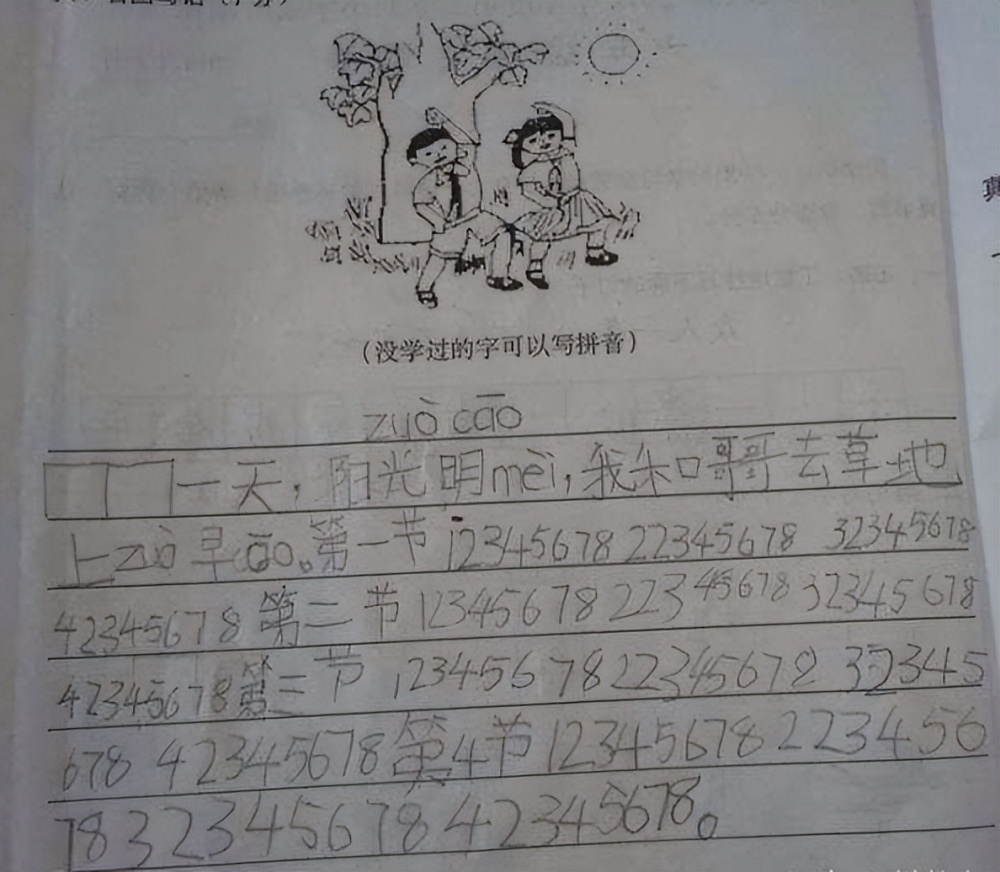 (没学过的字可以写拼音)
zuò cāo
一天，阳光明mèi，我和哥哥去草地
上zuò早cāo。第一节 12345678 22345678 32345678
42345678 第二节 12345678 22345678 32345678
42345678 第三节 12345678 22345678 32345
678 42345678 第4节 12345678 223456
78 32345678 42345678。